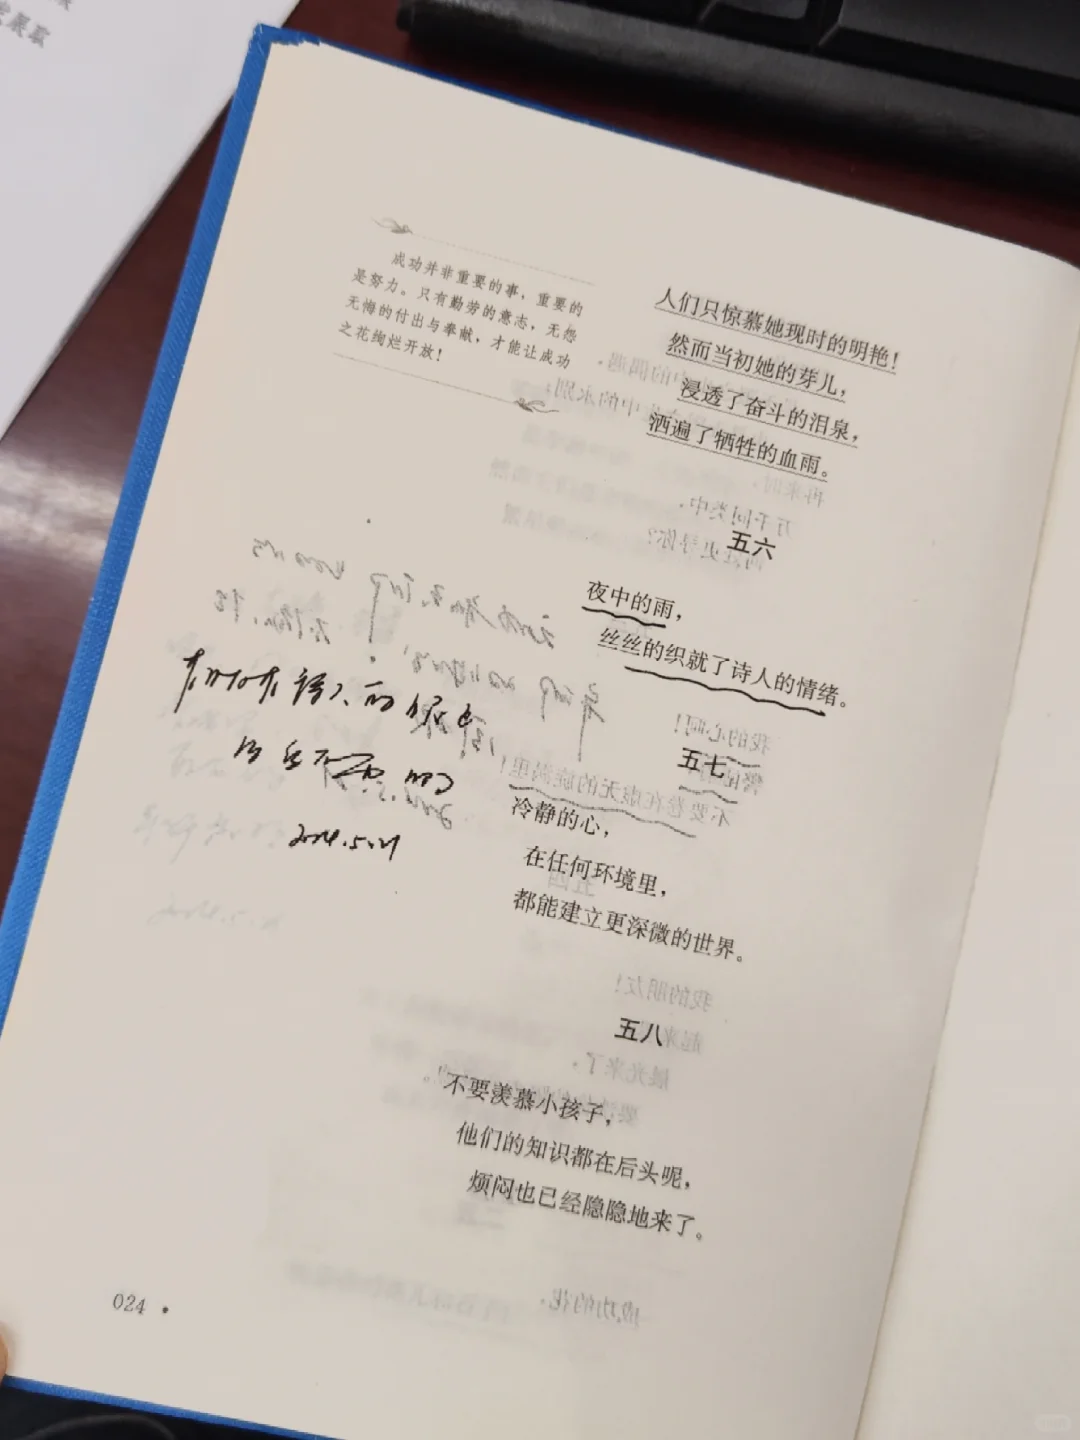 成功并非重要的事，重要的
是努力。只有勤劳的意志，无怨
无悔的付出与奉献，才能让成功
之花绚烂开放！
人们只惊慕她现时的明艳！
然而当初她的芽儿，
浸透了奋斗的泪泉，
洒遍了牺牲的血雨。
五六
夜中的雨，
丝丝的织就了诗人的情绪。
五七
冷静的心，
在任何环境里，
都能建立更深微的世界。
五八
不要羡慕小孩子，
他们的知识都在后头呢，
烦闷也已经隐隐地来了。
2024.5.21
024